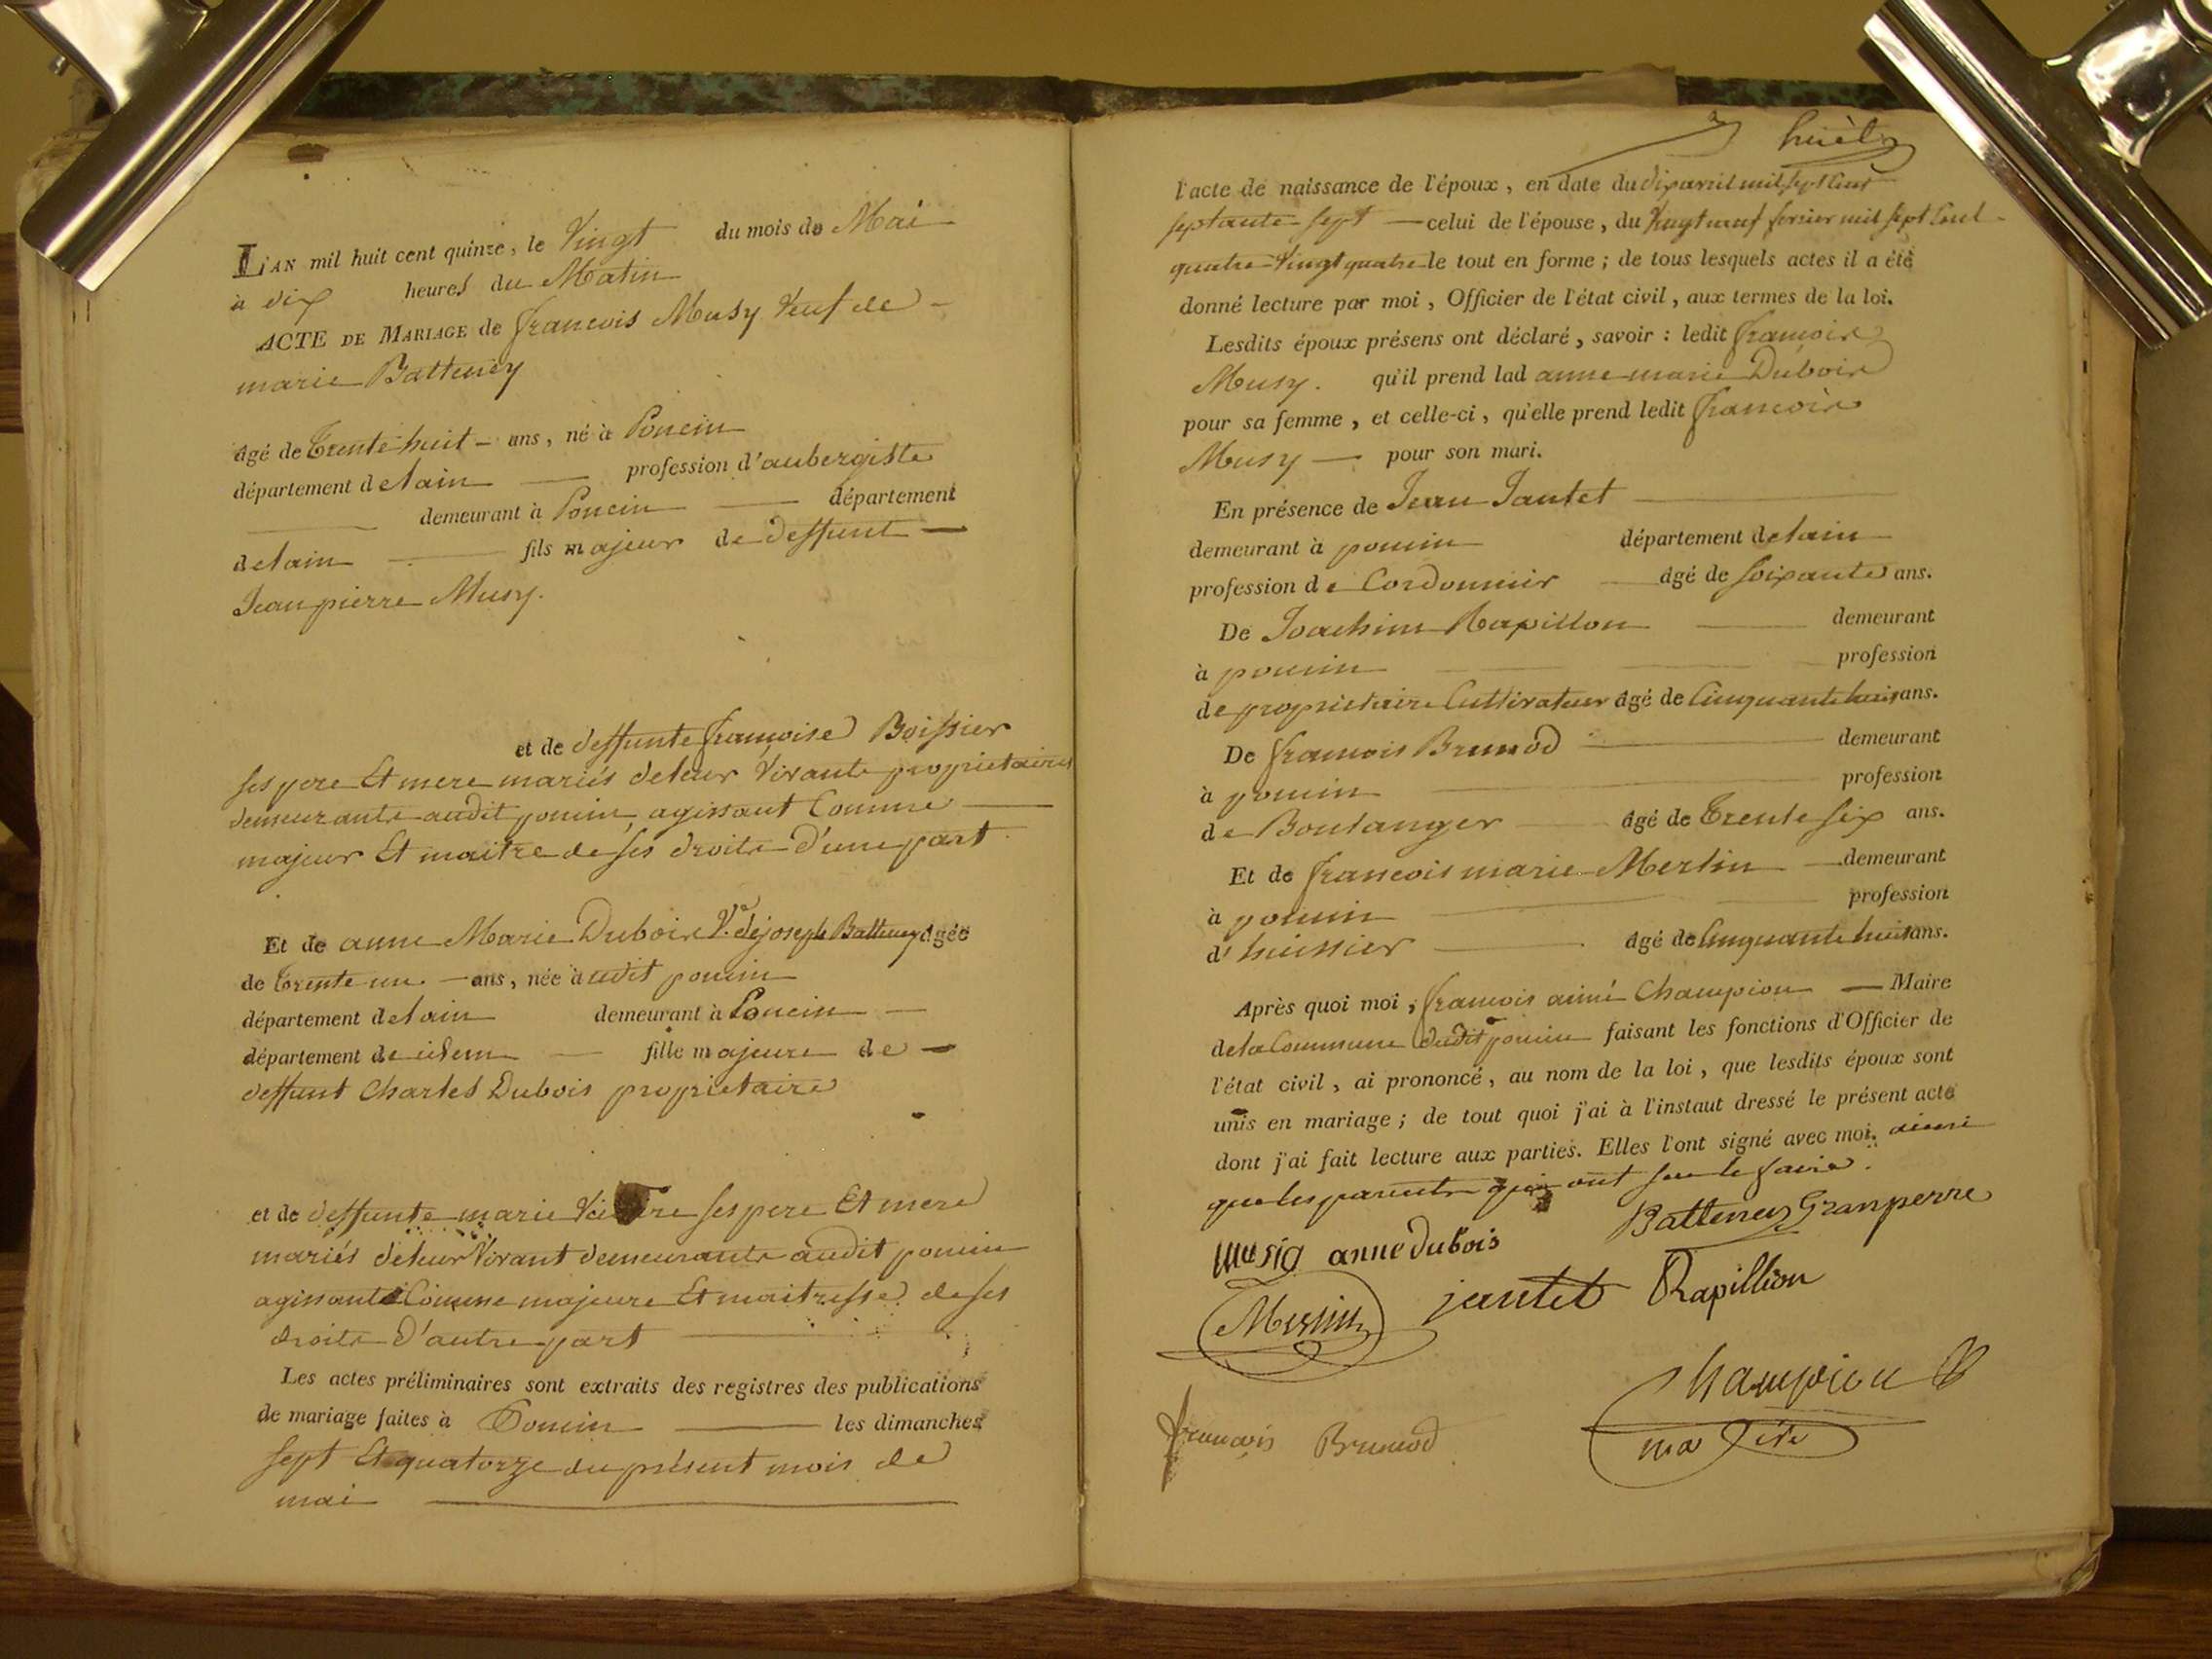 L'AN mil huit cent quinze, le Vingt du mois de Mai
à dix heures du Matin
ACTE DE MARIAGE de francois Musy Veuf de
marie Batteney
âgé de trente huit ans, né à Poncin
département de lain profession d'aubergiste
demeurant à Poncin département
de lain fils majeur de deffunt
Jean pierre Musy.
et de deffunte francoise Boissier
ses pere Et mere mariés de leur Vivants proprietaires
demeurants audit poncin, agissant Comme
majeur Et maitre de ses droits D'une part
Et de anne Marie Dubois Ve. de joseph Batteney âgée
de trente un ans, née audit poncin
département de lain demeurant à Poncin
département de idem fille majeure de
deffunt Charles Dubois propriétaire
et de deffunte marie ses pere Et mere
mariés de leur Vivant demeurants audit poncin
agissante Comme majeure Et maitresse de ses
droits D'autre part
Les actes préliminaires sont extraits des registres des publications
de mariage faites à Poncin les dimanches
sept Et quatorze du présent mois de
mai
huit
l'acte de naissance de l'époux, en date du dix avril mil sept Cent
septante sept celui de l'épouse, du Vingt neuf fevrier mil sept Cent
quatre Vingt quatre le tout en forme; de tous lesquels actes il a été
donné lecture par moi, Officier de l'état civil, aux termes de la loi.
Lesdits époux présens ont déclaré, savoir: ledit francois
Musy. qu'il prend lad anne marie Dubois
pour sa femme, et celle-ci, qu'elle prend ledit francois
Musy pour son mari.
En présence de Jean Jantet
demeurant à poncin département de lain
profession de Cordonnier âgé de soixante ans.
De Joachim Rapillon demeurant
à poncin profession
de proprietaire Cultivateur âgé de Cinquante huit ans.
De francois Brunod demeurant
à poncin profession
de Boulanger âgé de trente six ans.
Et de francois marie Merlin demeurant
à poncin profession
d'huissier âgé de Cinquante huit ans.
Après quoi moi, francois aimé Champion Maire
de la Commune dudit poncin faisant les fonctions d'Officier de
l'état civil, ai prononcé, au nom de la loi, que lesdits époux sont
unis en mariage; de tout quoi j'ai à l'instant dressé le présent acte
dont j'ai fait lecture aux parties. Elles l'ont signé avec moi. ainsi
que les parents qui ont su le faire.
musiq anne dubois Batteney Granperre
Merlin jantet Rapillion
Champion
francois Brunod maire